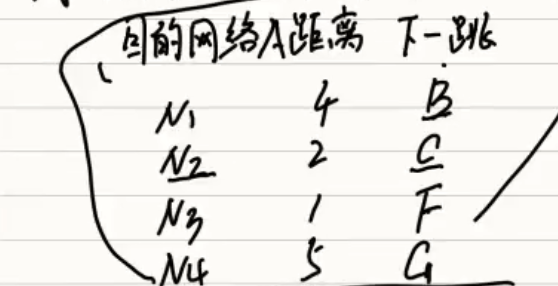 目的网络 A距离 下一跳
N1 4 B
N2 2 C
N3 1 F
N4 5 G